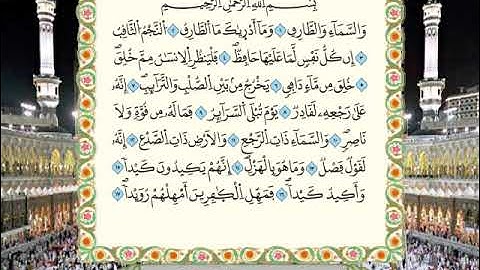 بِسْمِ اللَّهِ الرَّحْمَٰنِ الرَّحِيمِ
وَالسَّمَآءِ وَالطَّارِقِ ١ وَمَآ أَدْرَىٰكَ مَا الطَّارِقُ ٢ النَّجْمُ الثَّاقِبُ
٣ إِن كُلُّ نَفْسٍ لَّمَّا عَلَيْهَا حَافِظٌ ٤ فَلْيَنظُرِ الْإِنسَٰنُ مِمَّ خُلِقَ ٥
خُلِقَ مِن مَّآءٍ دَافِقٍ ٦ يَخْرُجُ مِنۢ بَيْنِ الصُّلْبِ وَالتَّرَآئِبِ ٧ إِنَّهُۥ
عَلَىٰ رَجْعِهِۦ لَقَادِرٌ ٨ يَوْمَ تُبْلَى السَّرَآئِرُ ٩ فَمَا لَهُۥ مِن قُوَّةٍ وَلَا
نَاصِرٍ ١٠ وَالسَّمَآءِ ذَاتِ الرَّجْعِ ١١ وَالْأَرْضِ ذَاتِ الصَّدْعِ ١٢ إِنَّهُۥ
لَقَوْلٌ فَصْلٌ ١٣ وَمَا هُوَ بِالْهَزْلِ ١٤ إِنَّهُمْ يَكِيدُونَ كَيْدًا ١٥
وَأَكِيدُ كَيْدًا ١٦ فَمَهِّلِ الْكَٰفِرِينَ أَمْهِلْهُمْ رُوَيْدًۢا ١٧